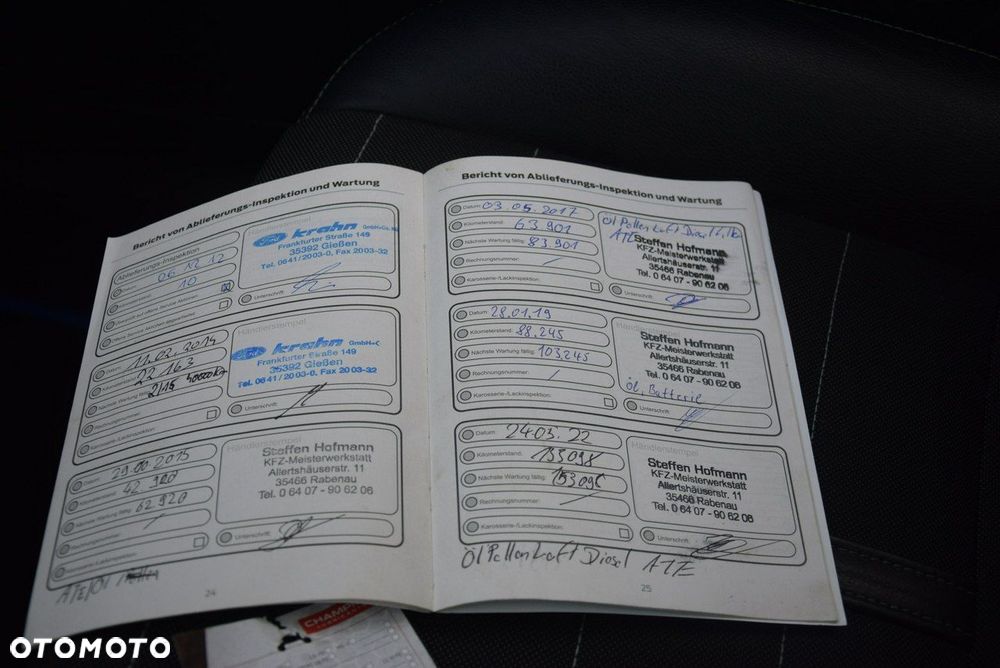 Bericht von Ablieferungs-Inspektion und Wartung
Ablieferungs-Inspektion
Händlerstempel
06 12 12
10
Ford krahn GmbH+Co. KG
Frankfurter Straße 149
35392 Gießen
Tel. 0641/2003-0, Fax 2003-32
Unterschrift:
Händlerstempel
11.02.2014
22 163
Ford krahn GmbH+C
Frankfurter Straße 149
35392 Gießen
Tel. 0641/2003-0, Fax 2003-32
Unterschrift:
Karosserie-/Lackinspektion:
Händlerstempel
2015
42 920
Nächste Wartung fällig: 62 920
Rechnungsnummer:
Karosserie-/Lackinspektion:
Steffen Hofmann
KFZ-Meisterwerkstatt
Allertshäuserstr. 11
35466 Rabenau
Tel. 0 64 07 - 90 62 06
Unterschrift:
24
Bericht von Ablieferungs-Inspektion und Wartung
Datum: 03 05. 2017
Kilometerstand: 63 901
Nächste Wartung fällig: 83 901
Rechnungsnummer:
Karosserie-/Lackinspektion:
Öl Pollen Luft Diesel
ATE
Steffen Hofmann
KFZ-Meisterwerkstatt
Allertshäuserstr. 11
35466 Rabenau
Tel. 0 64 07 - 90 62 06
Unterschrift:
Datum: 28.01.19
Kilometerstand: 88.245
Nächste Wartung fällig: 103245
Rechnungsnummer:
Karosserie-/Lackinspektion:
Händlerstempel
Steffen Hofmann
KFZ-Meisterwerkstatt
Allertshäuserstr. 11
35466 Rabenau
Tel. 0 64 07 - 90 62 06
Öl, Batterie
Unterschrift:
Datum: 24.03.22
Kilometerstand:
Nächste Wartung fällig:
Rechnungsnummer:
Karosserie-/Lackinspektion:
Händlerstempel
Steffen Hofmann
KFZ-Meisterwerkstatt
Allertshäuserstr. 11
35466 Rabenau
Tel. 0 64 07 - 90 62 06
Unterschrift:
Öl Pollen Luft Diesel ATE
25
OTOMOTO